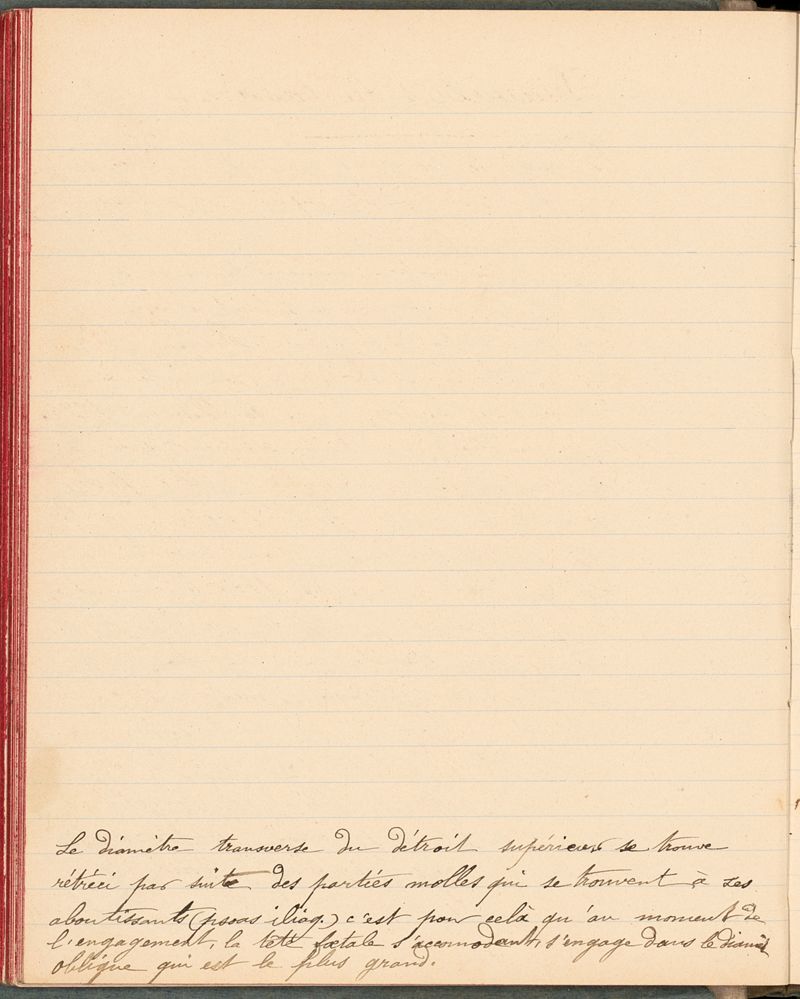 Le diamètre transverse du détroit supérieur se trouve
rétréci par suite des parties molles qui se trouvent à ses
aboutissants (psoas iliaq.) c'est pour celà qu'au moment de
l'engagement, la tête fœtale s'accomodant, s'engage dans le diamèt
oblique qui est le plus grand.